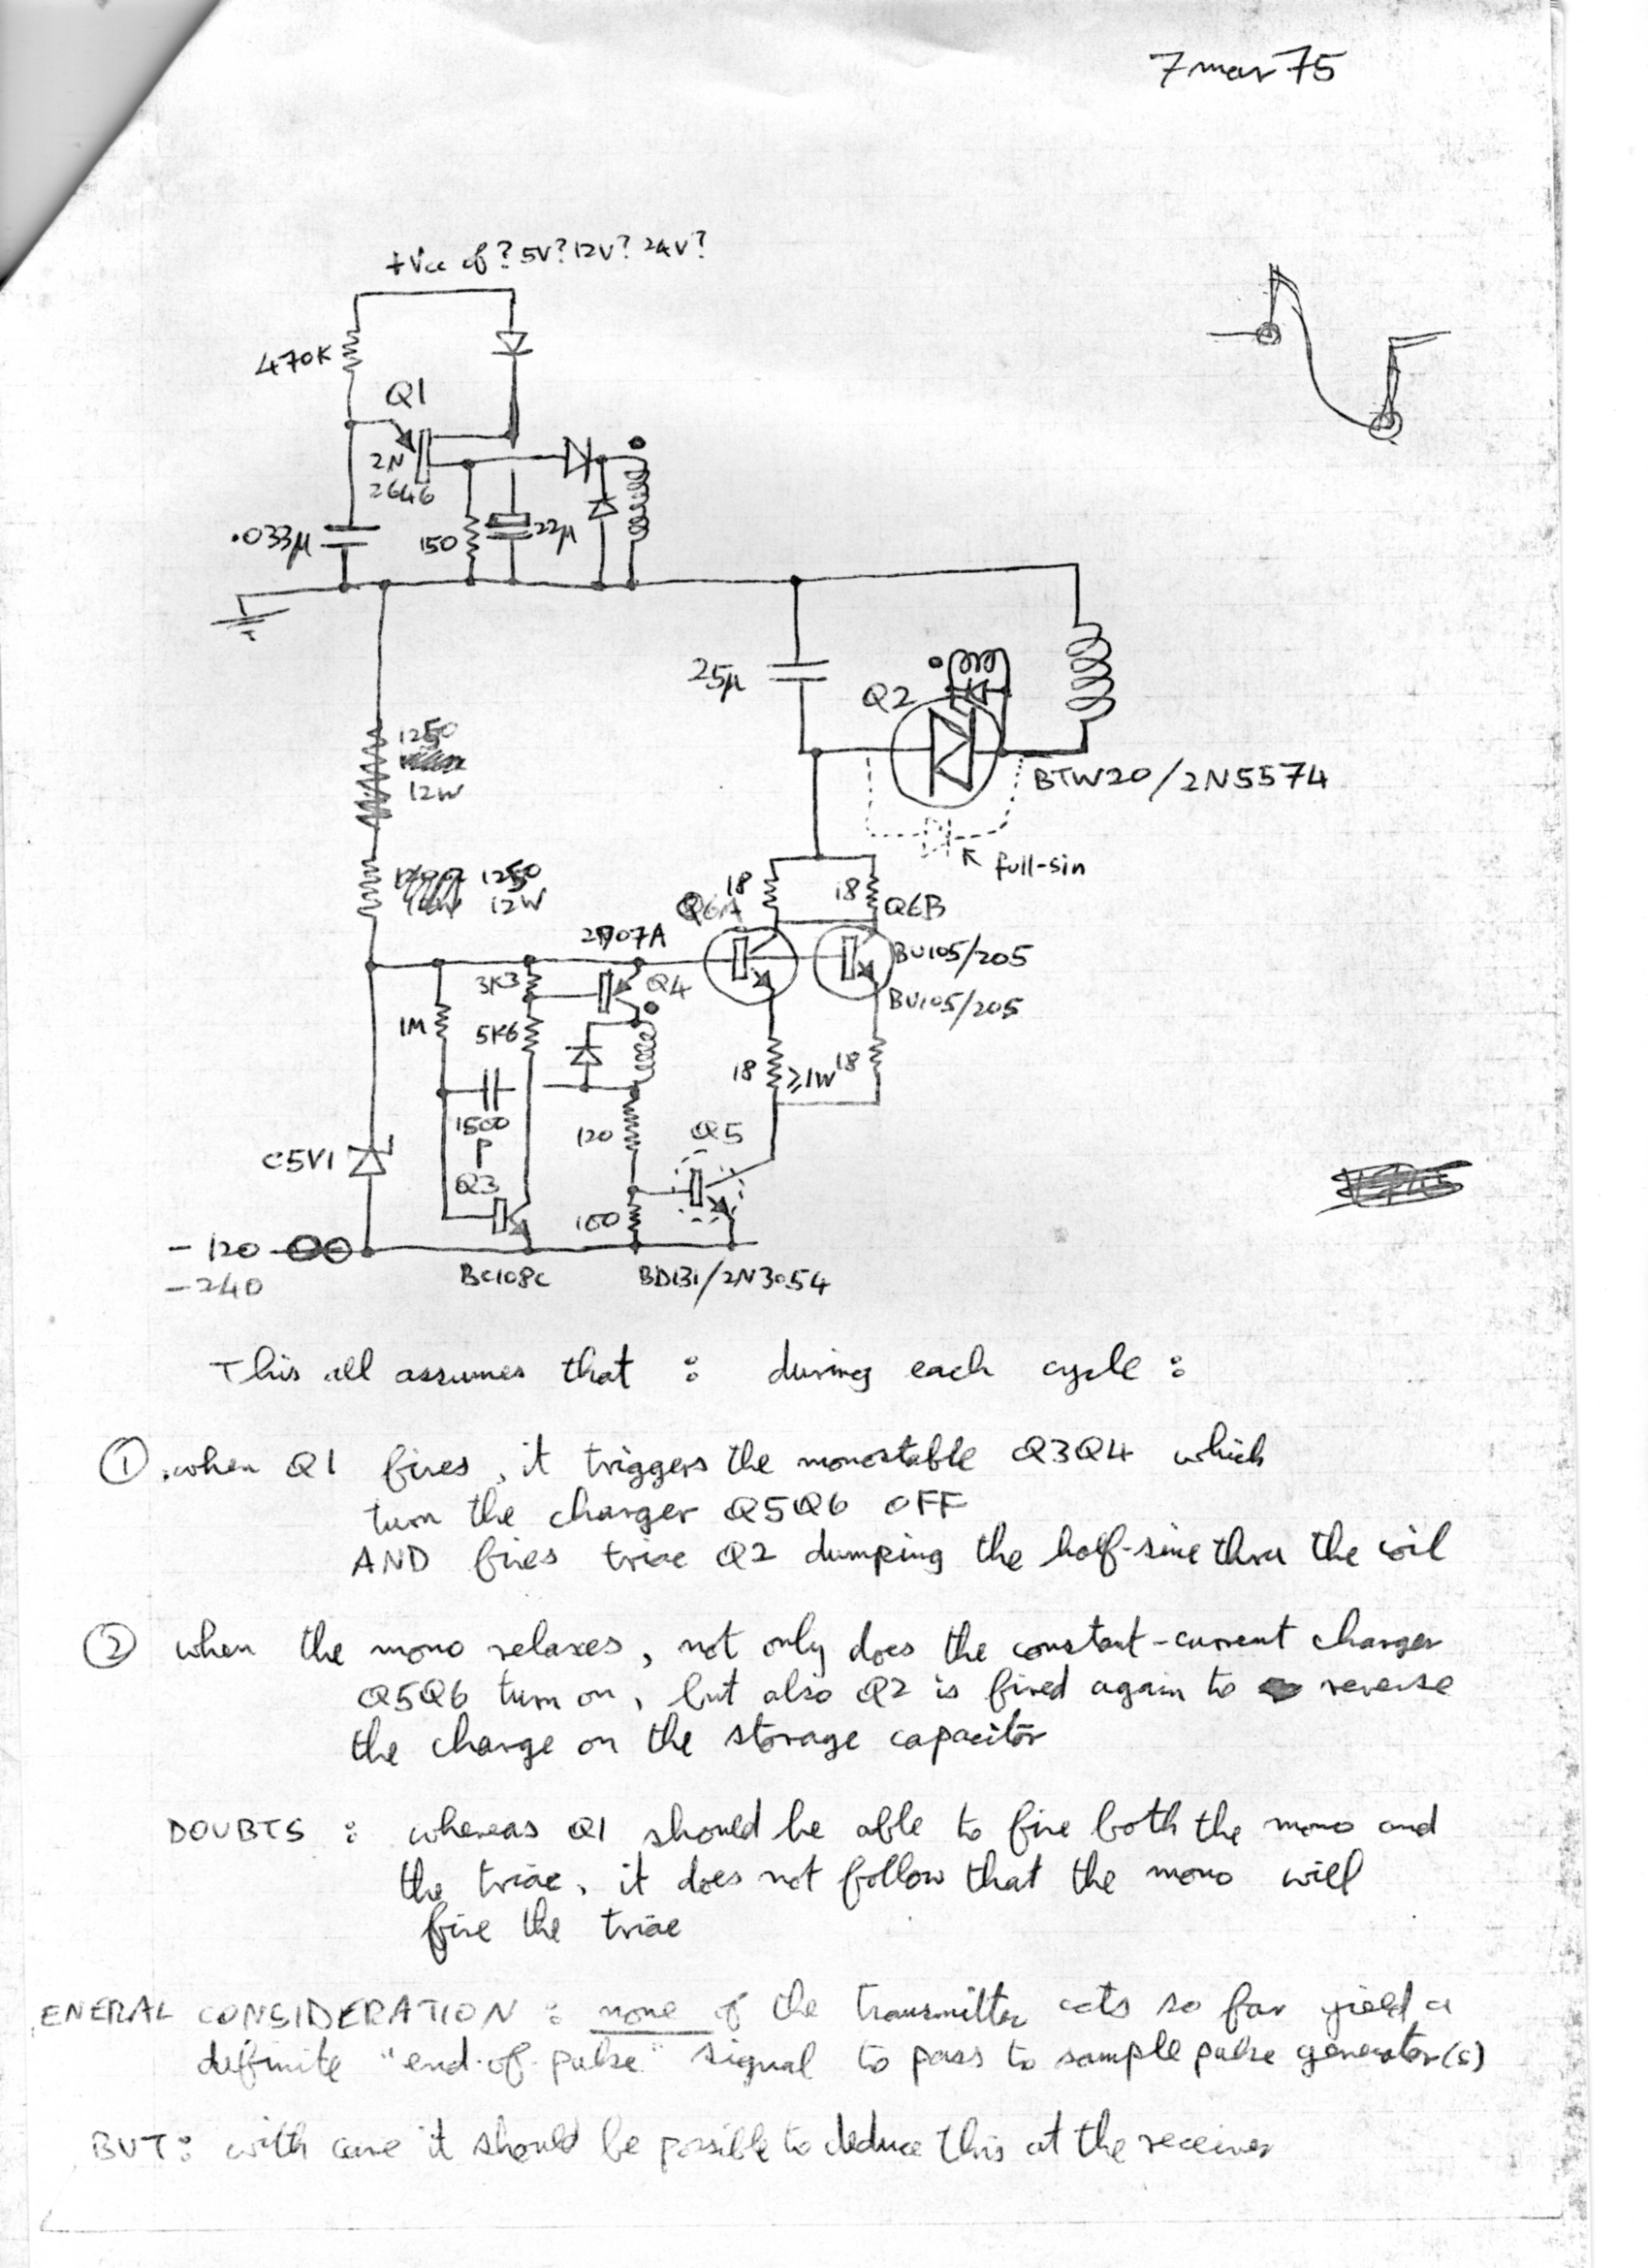 7 mar 75
+Vcc of ? 5V? 12V? 24V?
470K
Q1
2N
2646
.033µ
150
22µ
25µ
Q2
BTW20/2N5574
full-sin
1250
12W
1250
12W
18
18
Q6A
Q6B
2907A
BU105/205
BU105/205
3K3
Q4
1M
5K6
18
≥1W
18
1500
P
120
Q5
C5V1
Q3
100
- 120
- 240
BC108C
BD131/2N3054
This all assumes that : during each cycle :
① when Q1 fires, it triggers the monostable Q3Q4 which
turn the charger Q5Q6 OFF
AND fires triac Q2 dumping the half-sine thru the coil
② when the mono relaxes, not only does the constant-current charger
Q5Q6 turn on, but also Q2 is fired again to reverse
the charge on the storage capacitor
DOUBTS : whereas Q1 should be able to fire both the mono and
the triac, it does not follow that the mono will
fire the triac
ENERAL CONSIDERATION : none of the transmitter ccts so far yield a
definite "end-of-pulse" signal to pass to sample pulse generator(s)
BUT : with care it should be possible to deduce this at the receiver